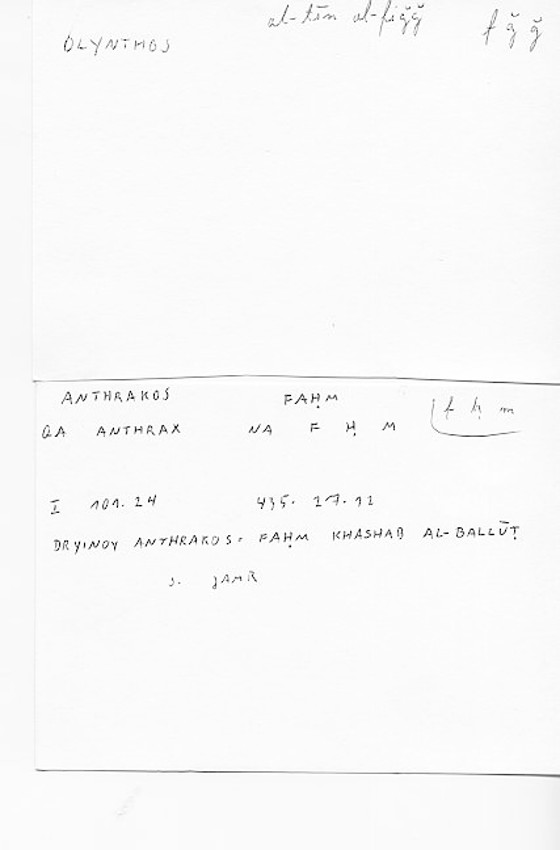 al-tīn al-fiǧǧ f ǧ ǧ
OLYNTHOS
ANTHRAKOS FAḤM
QA ANTHRAX NA F Ḥ M f ḥ m
I 101.24 435. 17.12
DRYINOY ANTHRAKOS. FAḤM KHASHAB AL-BALLŪṬ
s. JAMR